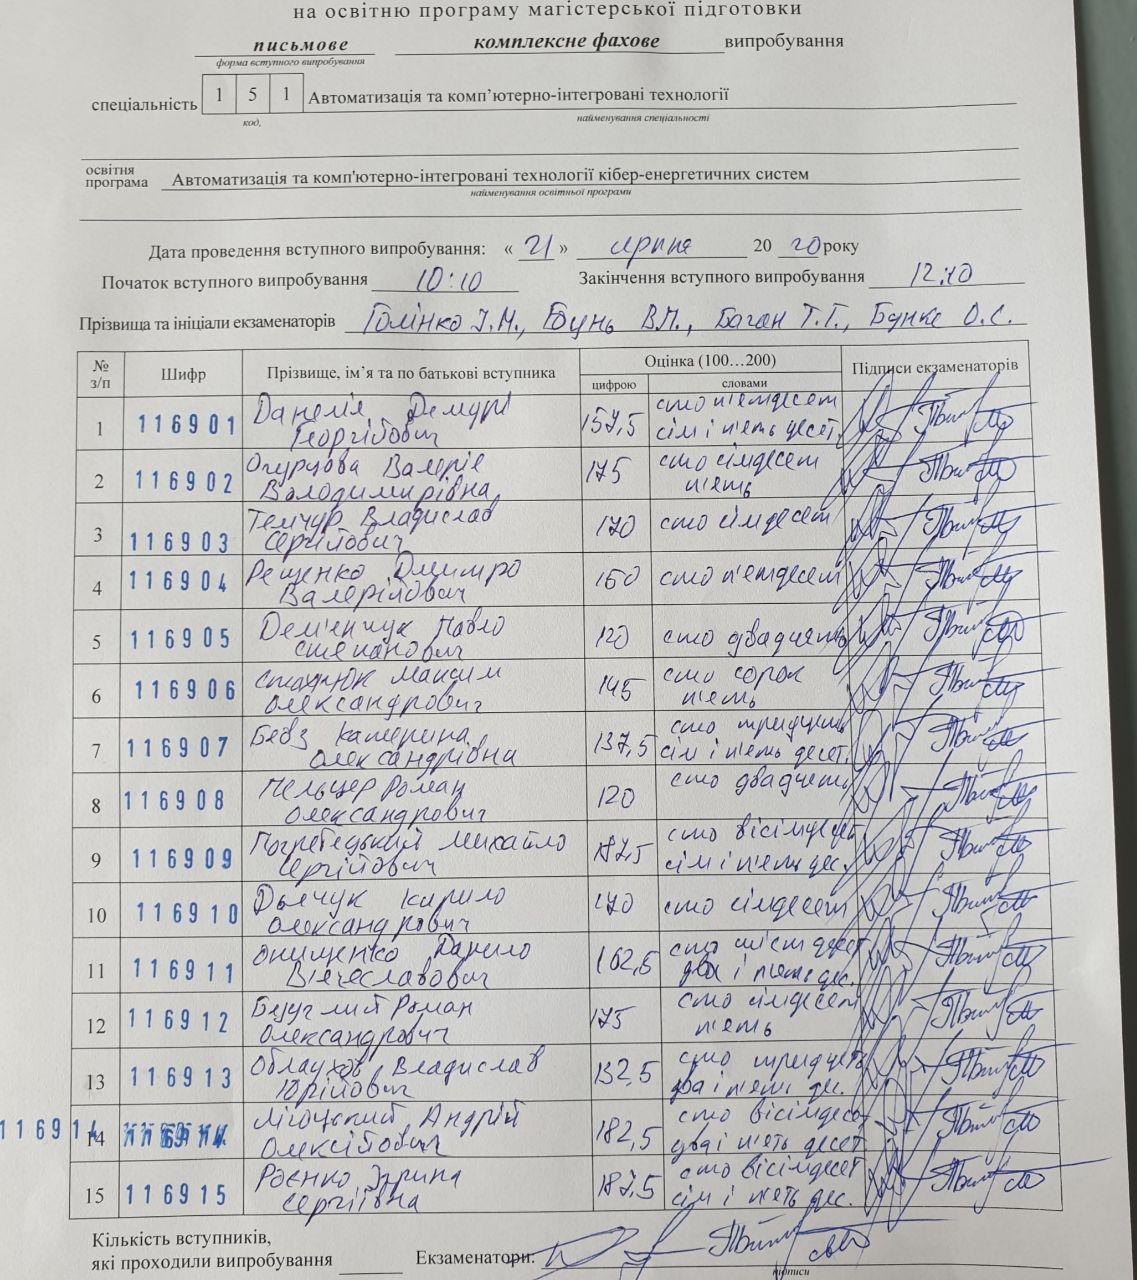 на освітню програму магістерської підготовки
письмове комплексне фахове випробування
форма вступного випробування
спеціальність 1 5 1 Автоматизація та комп’ютерно-інтегровані технології
код, найменування спеціальності
освітня програма Автоматизація та комп'ютерно-інтегровані технології кібер-енергетичних систем
найменування освітньої програми
Дата проведення вступного випробування: « 21 » серпня 20 20 року
Початок вступного випробування 10:10 Закінчення вступного випробування 12:10
Прізвища та ініціали екзаменаторів Голінко І.М., Бунь В.П., Баган Т.Г., Бунке О.С.
№ з/п Шифр Прізвище, ім’я та по батькові вступника Оцінка (100…200) Підписи екзаменаторів
цифрою словами
1 116901 Данелія Демурі 157,5 сто п'ятдесят
Георгійович сім і п'ять десят.
2 116902 Огурцова Валерія 175 сто сімдесят
Володимирівна п'ять
3 116903 Темчур Владислав 170 сто сімдесят
Сергійович
4 116904 Рещенко Дмитро 150 сто п'ятдесят
Валерійович
5 116905 Дем'янчук Павло 120 сто двадцять
Степанович
6 116906 Стаднюк Максим 145 сто сорок
Олександрович п'ять
7 116907 Бевз Катерина 137,5 сто тридцять
Олександрівна сім і п'ять десят.
8 116908 Пельцер Роман 120 сто двадцять
Олександрович
9 116909 Погребецький Михайло 187,5 сто вісімдесят
Сергійович сім і п'ять дес.
10 116910 Кирило 170 сто сімдесят
Олександрович
11 116911 Онищенко Данило 162,5 сто шістдесят
В'ячеславович два і п'ять дес.
12 116912 Безуглий Роман 175 сто сімдесят
Олександрович п'ять
13 116913 Облаухов Владислав 132,5 сто тридцять
Юрійович два і п'ять дес.
116914 14 Андрій 182,5 сто вісімдесят
Олексійович два і п'ять десят
15 116915 Роєнко Ірина 187,5 сто вісімдесят
Сергіївна сім і п'ять дес.
Кількість вступників,
які проходили випробування Екзаменатори:
підписи